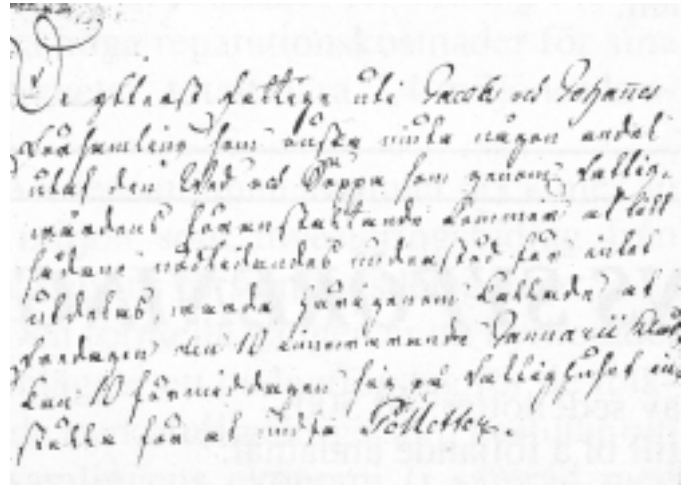 De ytterst fattige uti Jacobs och Johannes
Församling som önska niuta någon andel
utaf den Wed och Soppa som genom Fattig-
wårdens föranstaltande kommer at till
sådane nödlidandes understöd för intet
utdelas, warda härigenom kallade at
Fredagen den 10 innewarande Januarii Kloc-
kan 10 förmiddagen sig på Fattighuset in-
ställa för at undfå Polletter.